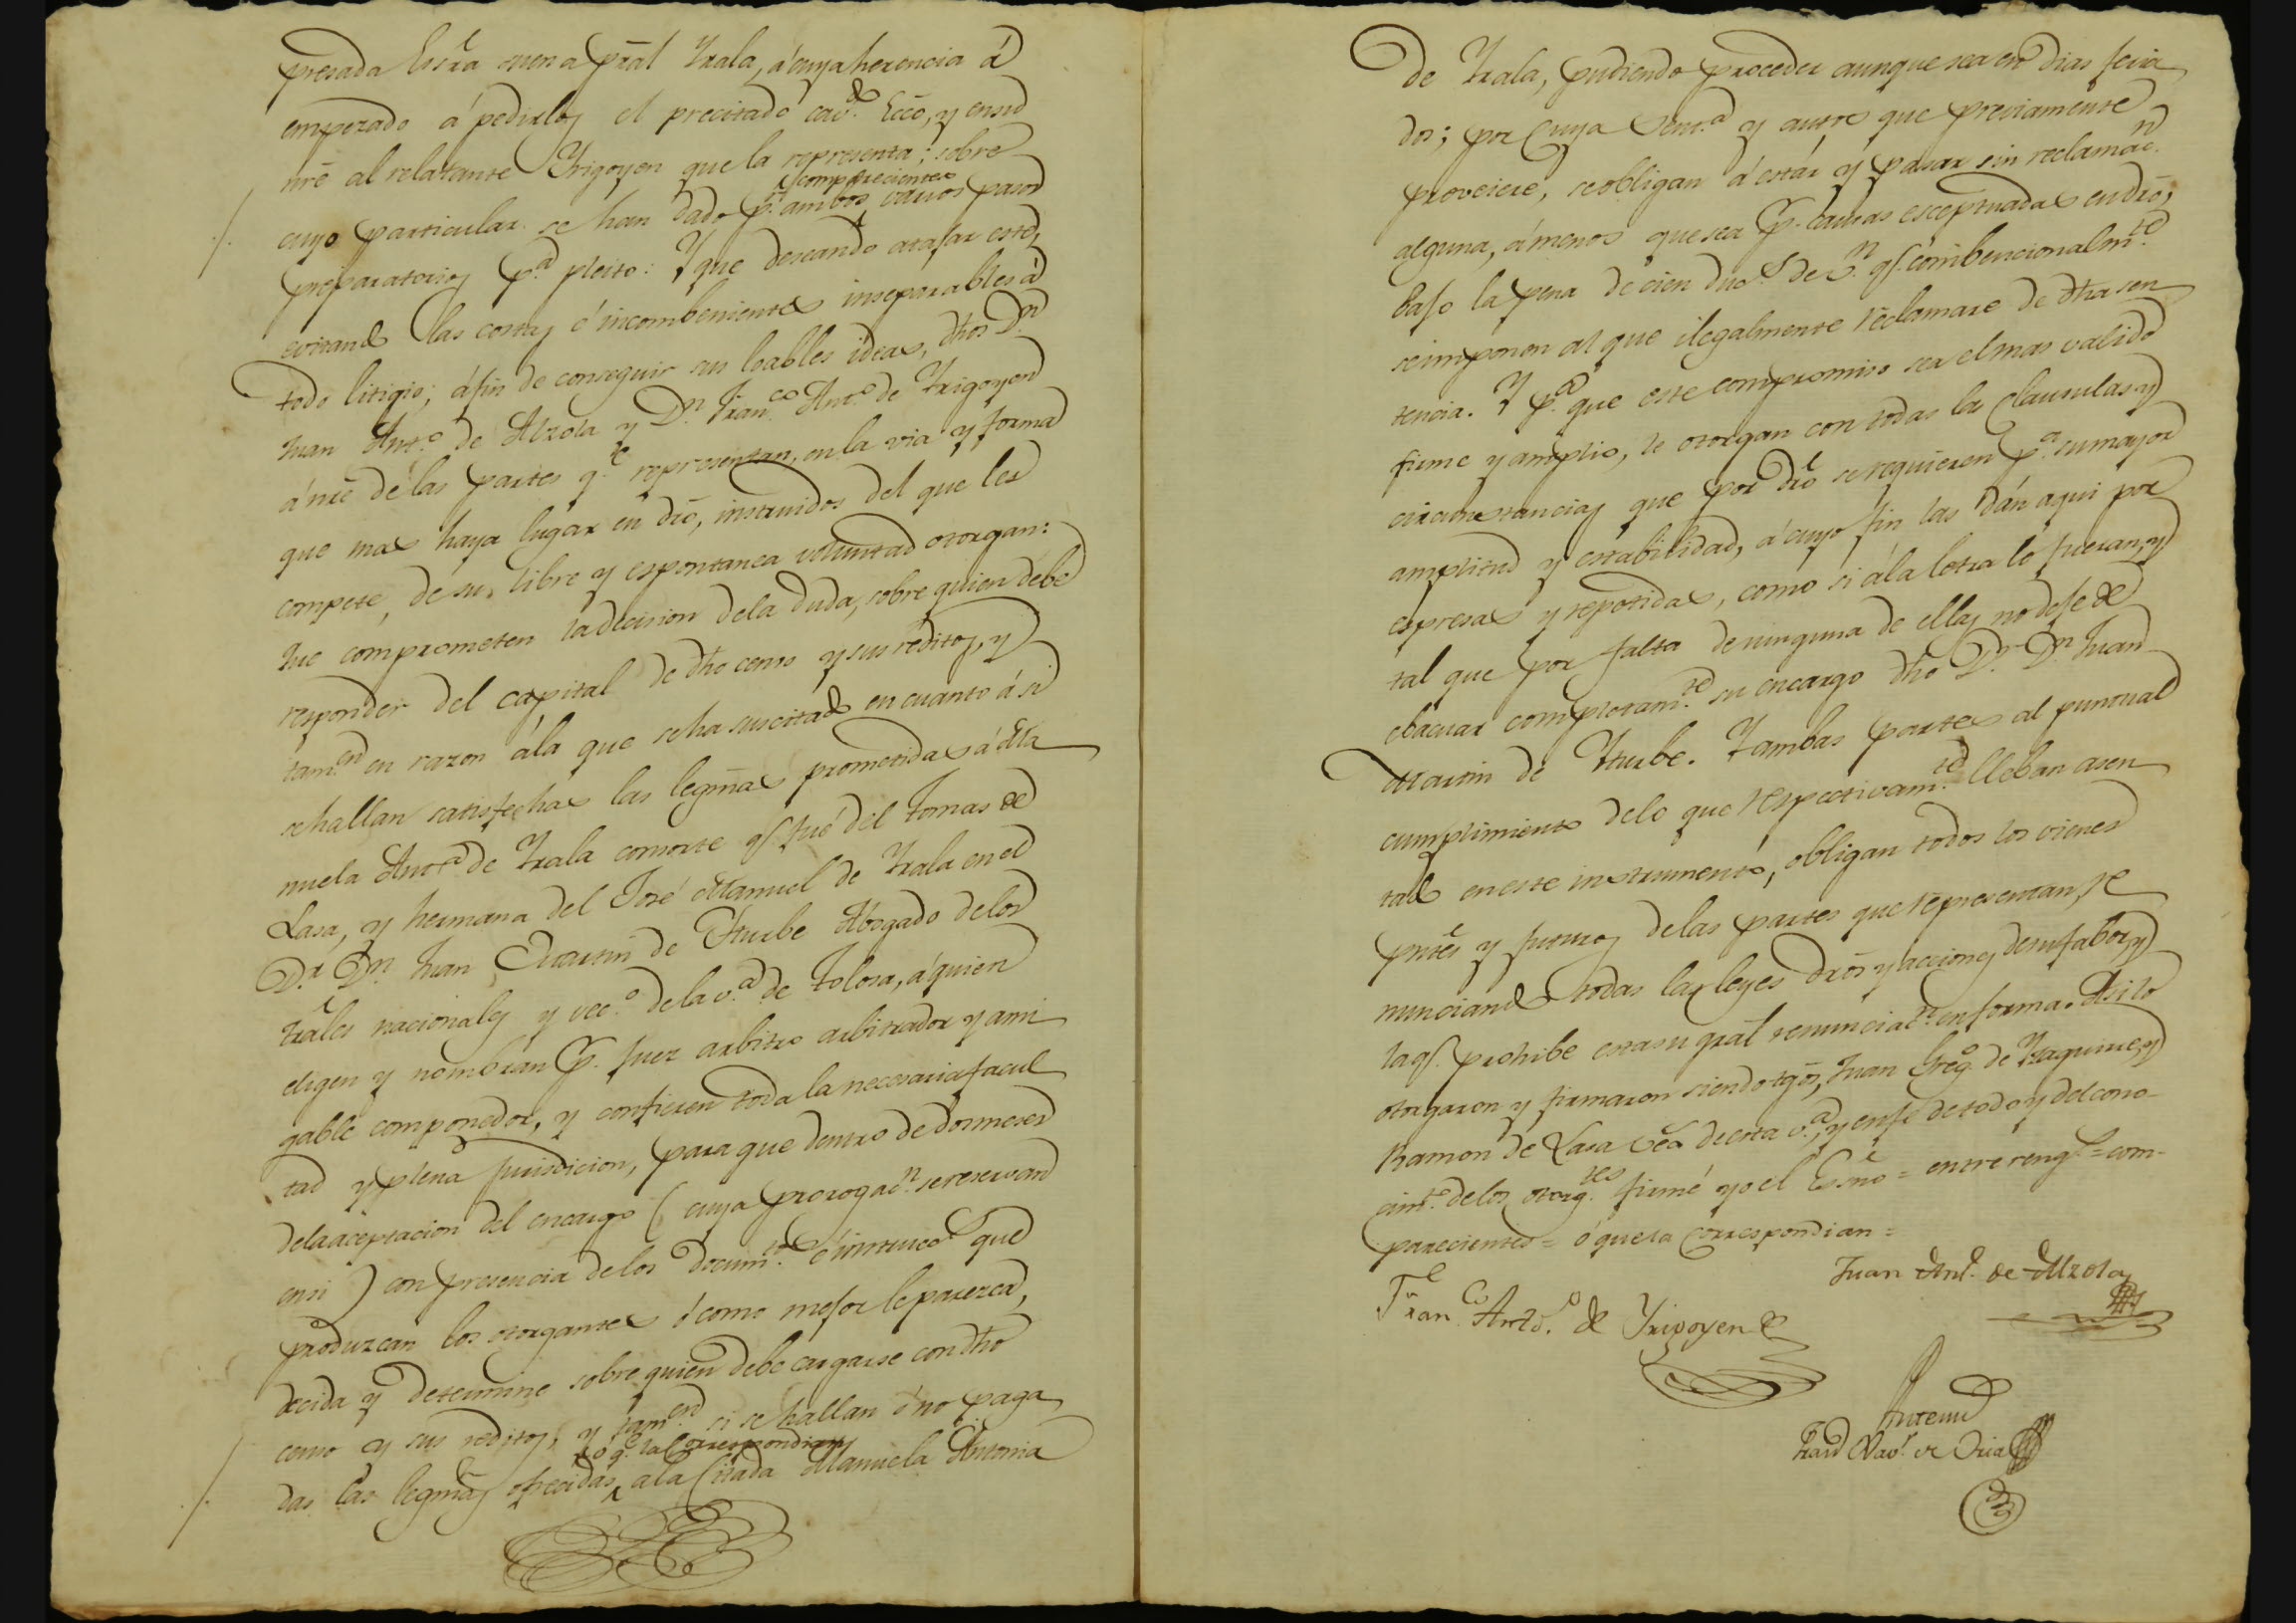 presada Essra. mera pral Yrala, á cuya herencia á
empezado á pedirlos el precitado cavdo. Ecco, y en su
nre al relatante Yrigoyen que la representa; sobre
cuyo particular se han dado pr. ambos comparecientes varios pasos
preparatorios pa. pleito: Y que deseando atajar este,
evitando las costas é incombenientes inseparables á
todo litigio; á fin de conseguir sus loables ideas, dhos Dn.
Juan Anto. de Alzola y Dn. Franco. Anto. de Yrigoyen
á nre de las partes qe. representan, en la via y forma
que mas haya lugar en dro, instruidos del que les
compete, de su libre y espontanea voluntad otorgan:
Que comprometen la decision de la duda, sobre quien debe
responder del capital de dho censo y sus reditos, y
tamen. en razon á la que se ha suscitado en cuanto á si
se hallan satisfechas las legmas prometidas á dha Ma
nuela Anta. de Yrala consorte q. fué del Tomas de
Lasa, y hermana del José Manuel de Yrala en el
Dr. Dn. Juan Martin de Yturbe Abogado de los
trales nacionales y veco. de la va. de Tolosa, á quien
eligen y nombran p. Juez arbitro arbitrador y ami
gable componedor, y confieren toda la necesaria facul
tad y plena jurisdicion, para que dentro de dos meses
de la aceptacion del encargo (cuya prorogacn. se reservan
en si) con presencia de los documtos. é instruccs. que
produzcan los otorgantes ó como mejor le parezca,
decida y determine sobre quien debe cargarse con dho
censo y sus reditos, y tamen. si se hallan ó no paga
das las legmas ofrecidas ó qe. la correspondian á la citada Manuela Antonia
de Yrala, pudiendo proceder aunque sea en dias feria
dos; por cuya senta. y autos que previamente
proveiere, se obligan á estár y pasar sin reclamacn.
alguna, á menos que sea p. causas esceptuadas en dro,
bajo la pena de cien ducs. de vn. q. combencionalmte.
se imponen al que ilegalmente reclamare de dha sen
tencia. Y pa. que este compromiso sea el mas valido
firme y amplio, le otorgan con todas las clausulas y
circunstancias que por dro se requieren pa. su mayor
amplitud y estabilidad, á cuyo fin las dán aqui por
espresas y repetidas, como si á la letra lo fueran, y
tal que por falta de ninguna de ellas no deje de
ebacuar completamte. su encargo dho Dr. Dn. Juan
Martin de Yturbe. Y ambas partes al puntual
cumplimiento de lo que respectivamte. lleban asen
tado en este instrumento, obligan todos los vienes
pntes y futuros de las partes que representan, re
nunciando todas las leyes dros y acciones de su fabor, y
la q. prohibe esta su gral renunciacn. en forma. Asi lo
otorgaron y firmaron siendo tgos, Juan Grego. de Yzaguirre, y
Ramon de Lasa vecs de esta va., y en fe de todo y del cono-
cimto. de los otorgtes. firmé yo el Essno = entre rengs. = com-
parecientes = ó que la correspondian =
Juan Anto. de Alzola
Franco. Anto. de Yrigoyen
Ante mi
Franco Xavr. de Oria